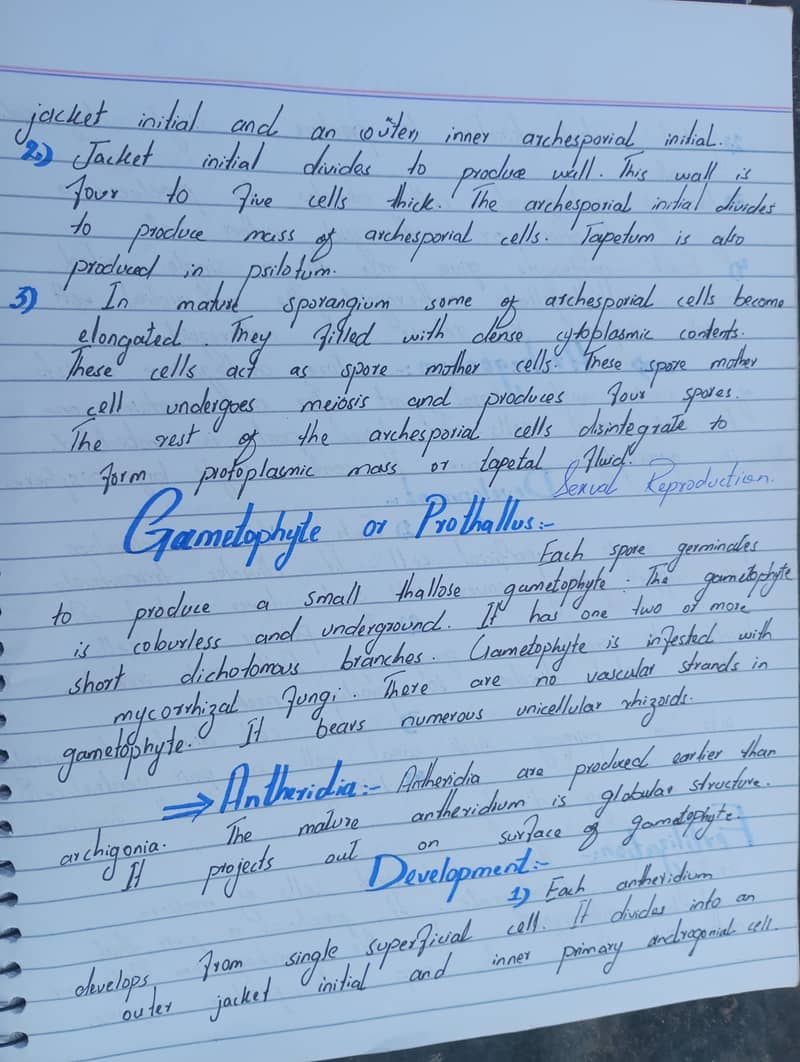 jacket initial and an outer, inner archesporial initial.
2.) Jacket initial divides to produce wall. This wall is
four to five cells thick. The archesporial initial divides
to produce mass of archesporial cells. Tapetum is also
produced in psilotum.
3) In mature sporangium some of archesporial cells become
elongated. They filled with dense cytoplasmic contents.
These cells act as spore mother cells. These spore mother
cell undergoes meiosis and produces four spores.
The rest of the archesporial cells disintegrate to
form protoplasmic mass or tapetal fluid.
Sexual Reproduction.
Gametophyte or Prothallus:-
Each spore germinates
to produce a small thallose gametophyte. The gametophyte
is colourless and underground. It has one two or more
short dichotomous branches. Gametophyte is infested with
mycorrhizal fungi. There are no vascular strands in
gametophyte. It bears numerous unicellular rhizoids.
⇒ Antheridia:- Antheridia are produced earlier than
archigonia. The mature antheridium is globular structure.
It projects out on surface of gametophyte.
Development:-
1) Each antheridium
develops from single superficial cell. It divides into an
outer jacket initial and inner primary androgonial cell.